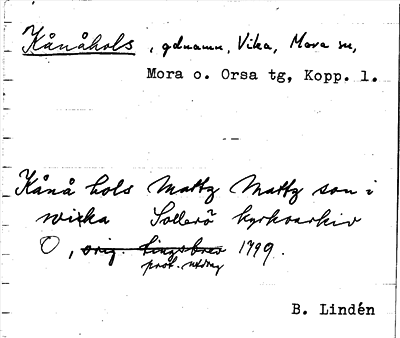 Kånåhols, gdnamn, Vika, Mora sn,
Mora o. Orsa tg, Kopp. l.
Kånå hols Mattz Mattz son i
wikka Sollerö kyrkoarkiv
O, orig. tingsbrev 1799.
prot. utdrag
B. Lindén